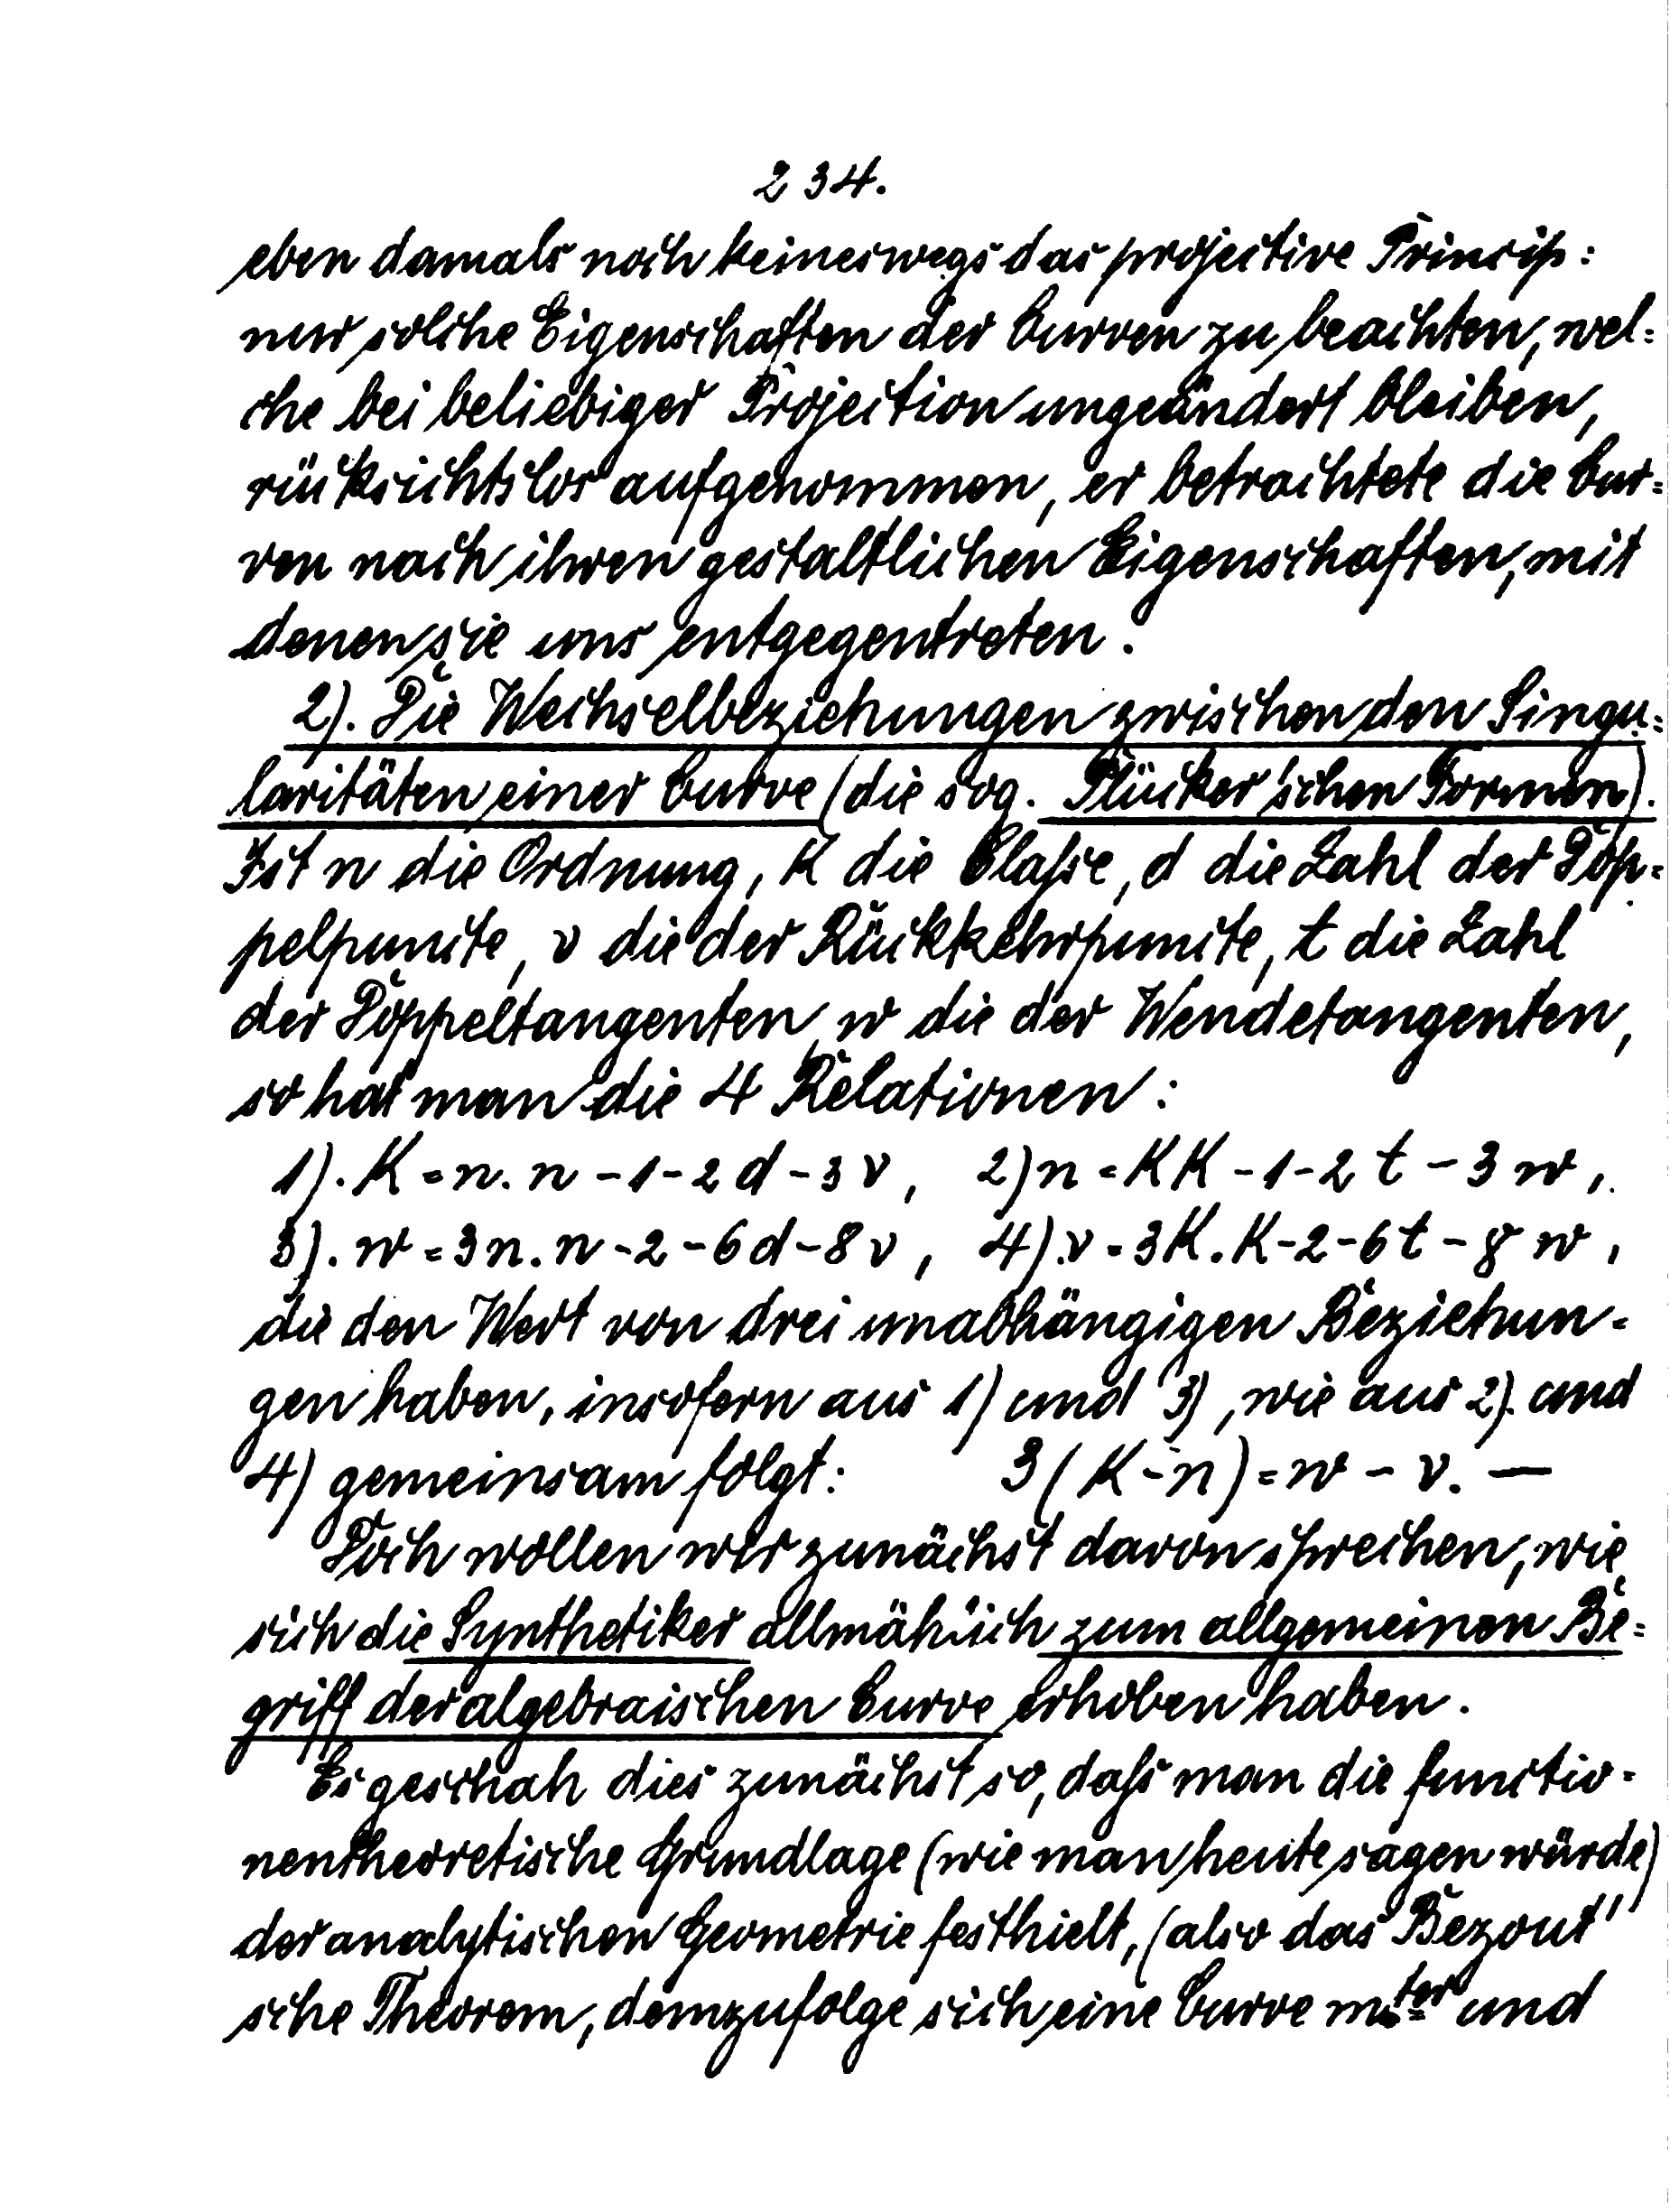 234.
eben damals noch keineswegs das projective Princip:
nur solche Eigenschaften der Curven zu beachten, wel=
che bei beliebiger Projection ungeändert bleiben,
rücksichtslos aufgenommen, er betrachtete die Cur=
ven nach ihren gestaltlichen Eigenschaften, mit
denen sie uns entgegentreten.
2). Die Wechselbeziehungen zwischen den Singu=
laritäten einer Curve (die sog. Plücker'schen Formen).
Ist n die Ordnung, K die Classe, d die Zahl der Dop=
pelpuncte, v die der Rückkehrpuncte, t die Zahl
der Doppeltangenten, w die der Wendetangenten,
so hat man die 4 Relationen:
1). K = n. n - 1 - 2 d - 3 v, 2) n = K K - 1 - 2 t - 3 w,
3). w = 3 n. n - 2 - 6 d - 8 v, 4). v = 3 K. K - 2 - 6 t - 8 w,
die den Wert von drei unabhängigen Beziehun=
gen haben, insofern aus 1) und 3), wie aus 2). und
4) gemeinsam folgt: 3 (K - n) = w - v. —
Doch wollen wir zunächst davon sprechen, wie
sich die Synthetiker allmählich zum allgemeinen Be=
griff der algebraischen Curve erhoben haben.
Es geschah dies zunächst so, dass man die functio=
nentheoretische Grundlage (wie man heute sagen würde)
der analytischen Geometrie festhielt, (also das Bezout'
sche Theorem, demzufolge sich eine Curve m.ter und